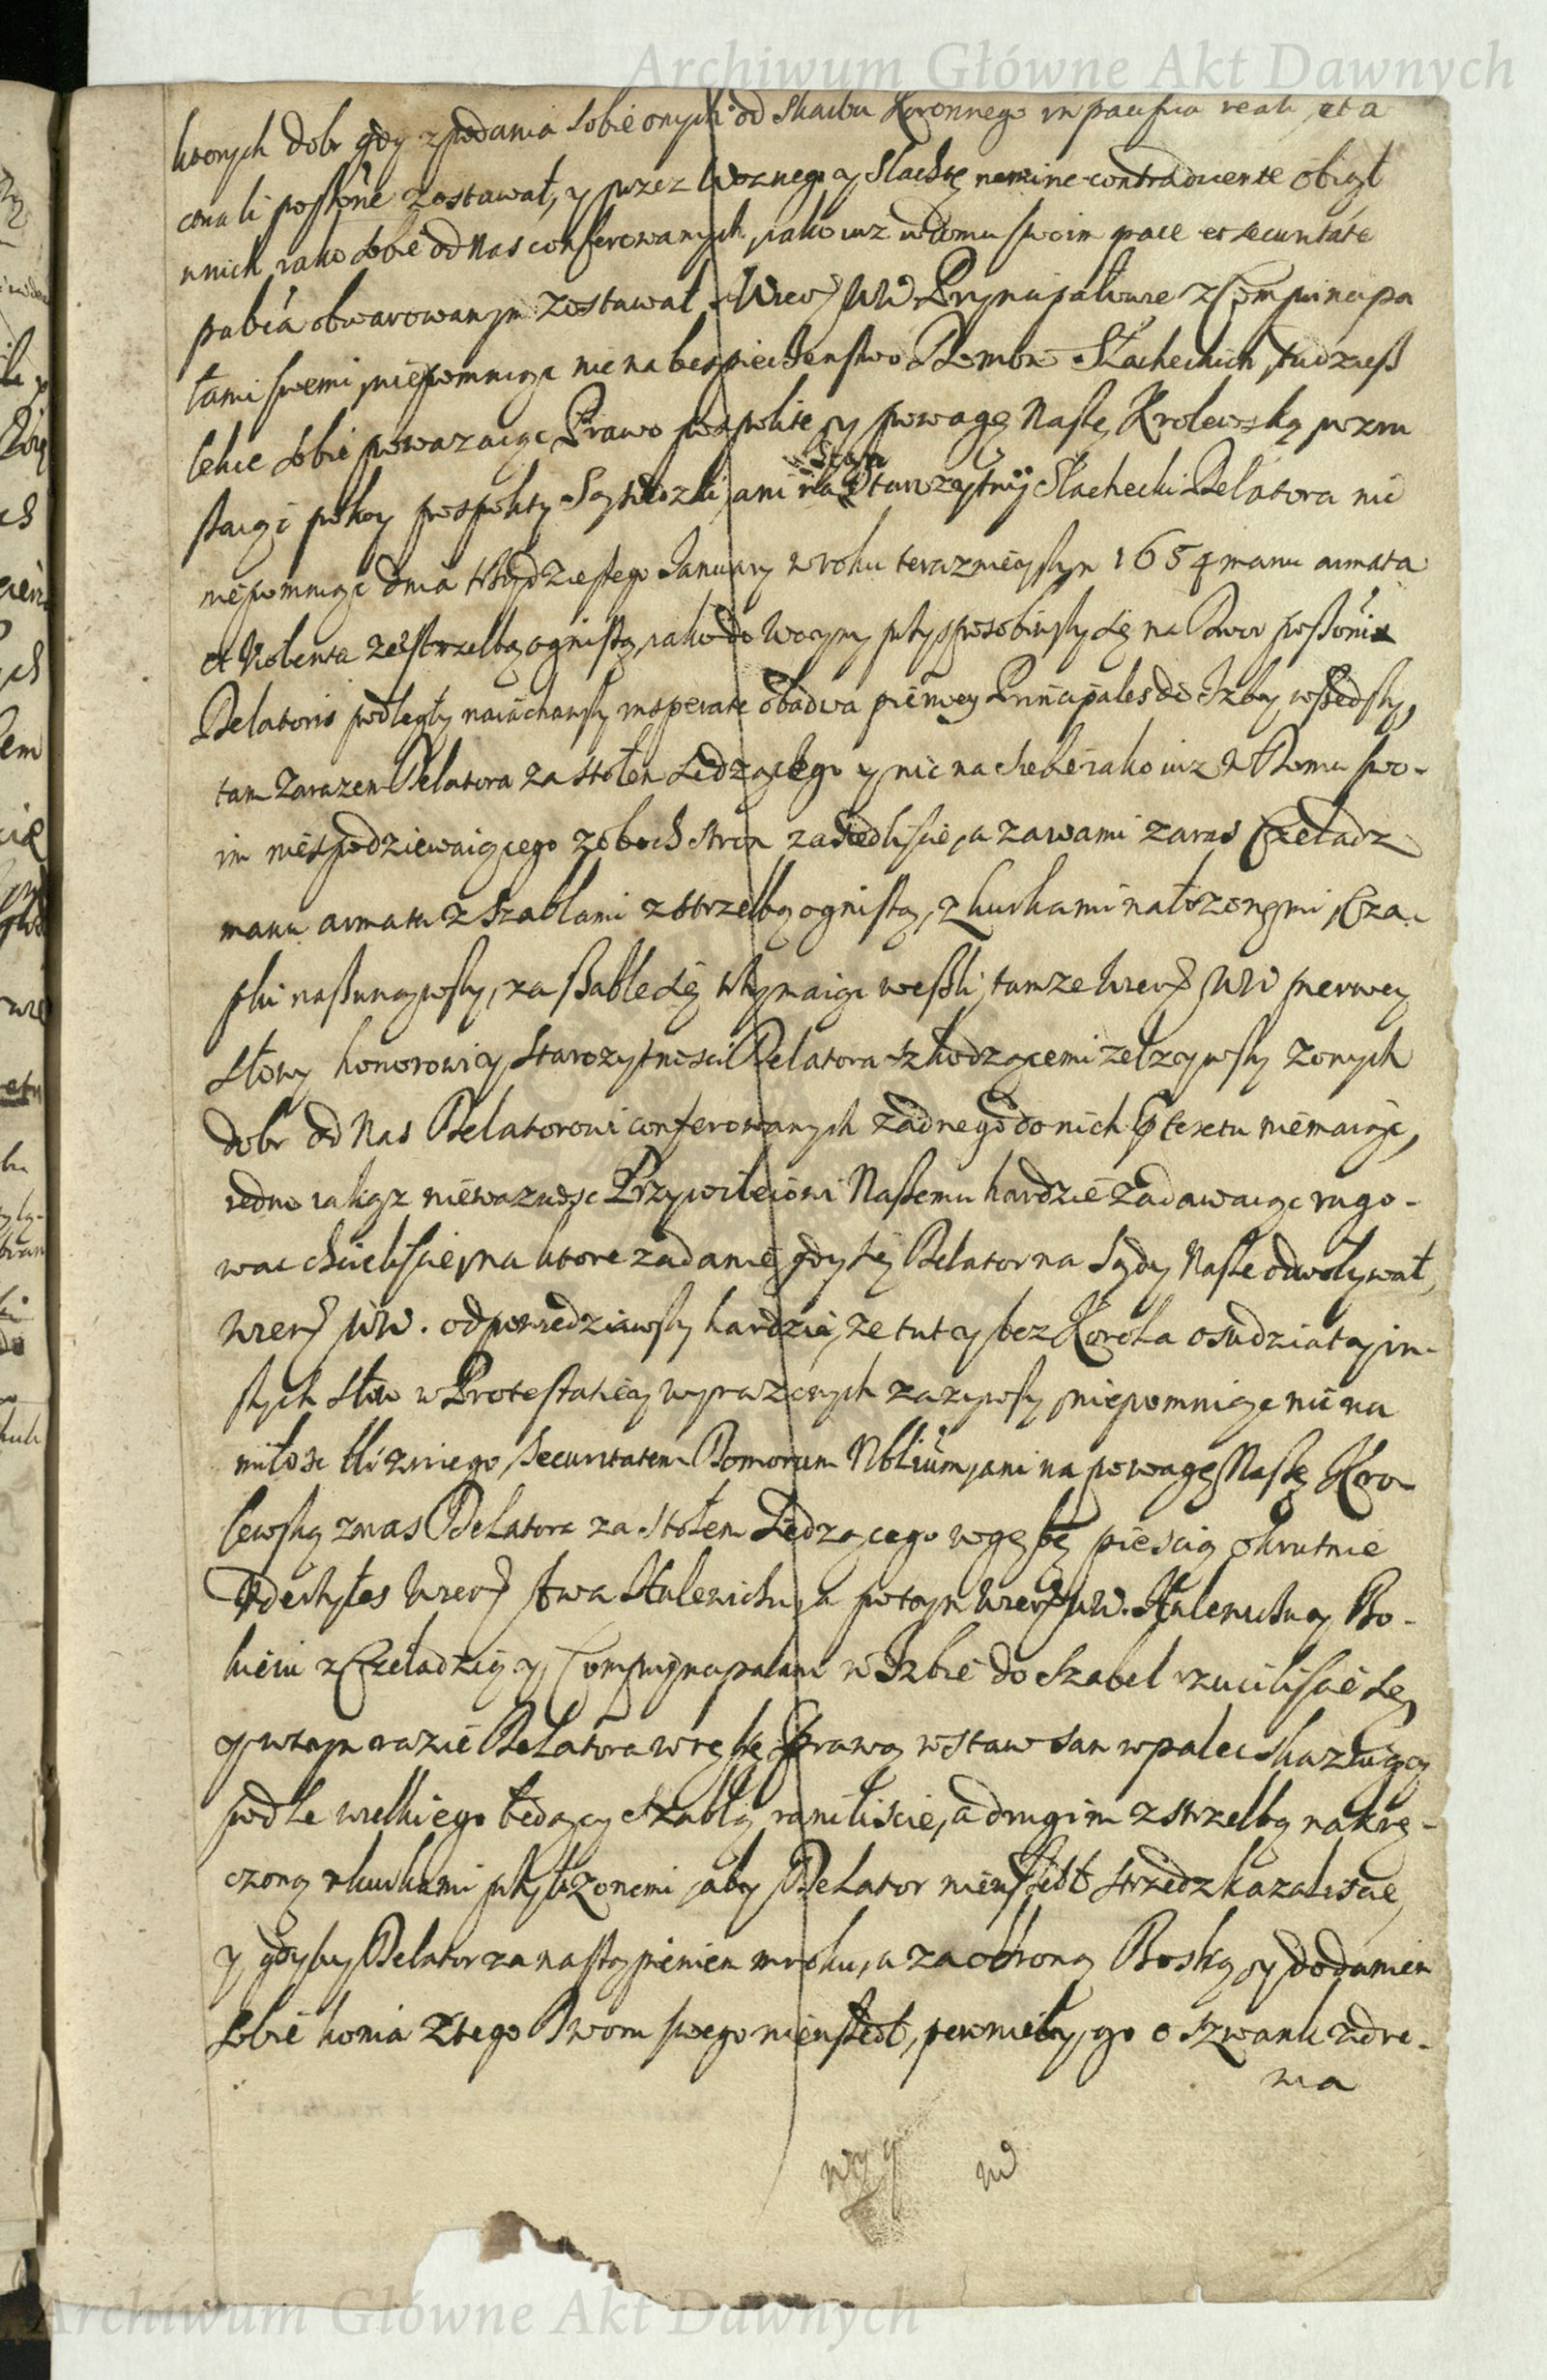 Archiwum Główne Akt Dawnych
ktorych dobr gdy z podania sobie onych od Skarbu Koronnego in pacifica reali et a
ctuali possone zostawał, y przez Woznego y Slachtę nemine contradicente obiął
w nich iako sobie od Nas conferowanych, iako iuz w domu swoim pace et securitate
publica obwarowanym zostawał. Wier UW Pryncypałowie z Compincipa
łami swemi, niepomniąc nic na bespieczenstwo Domow Slacheckich, tudziesz
lekce sobie powazaiąc Prawo pospolite, y powagę Naszę Krolewską wzru
szaiąc pokoy pospolity Sąsiedzki, ani na Stan Starozytny Slachecki Delatora nic
niepomniąc dnia trzydziestego January w roku teraznieyszym 1654 manu armata
et violenta ze strzelbą ognistą, iako do Woyny przysposobiwszy się na Dwor possonis
Delatoris podległy naiachawszy insperate obadwa pierwey Principales do Izby wszedszy,
tam zarazem Delatora za stołem siedzącego y nic na siebie iako iuz w Domu swo-
im niespodziewaiącego z oboch stron zasiedliscie, a za wami zaras Czeladz
manu armata z szablami z strzelbą ognistą, z kurkami nałozonymi, Cza-
pki nasunąwszy, za szable się trzymaiąc weszli, tamze Wier UW pierwey
słowy honorowi y Starozytnosci Delatora szkodzącemi zelzywszy z onych
dobr od Nas Delatorowi conferowanych zadnego do nich Interetu niemaiąc,
iedno iakąz niewaznosc Przywileiowi Naszemu hardzie zadawaiąc rugo-
wac chcieliscie, na ktore zadanie gdy się Delator na Sądy Nasze odwoływał,
Wier UW. odpowiedziawszy hardzie, ze tu y bez Krola osądział y in-
szych słow w Protestatiey wyrazonych zazywszy, niepomniąc nic na
miłosc blizniego, securitatem Domorum Nblium, ani na powagę Naszę Kro-
lewską z was Delatora za stołem siedzącego w gębę pięscią okrutnie
Uderzyłes Wier Iwa Hulewiczu, a potym Wier UW. Hulewiczu y Bo-
kieiu z Czeladzią y Compryncypałami w Izbie do szabel rzuciliscie się
y w tym razie Delatora w rękę prawą w staw sam w palec skazuiący
podle wielkiego będący szablą raniliscie, a drugim z strzelbą nakrę-
czoną z kurkami przyłozonemi, aby Delator nieuszedł strzedz kazaliscie,
y gdyby Delator za nastąpieniem mroku, a za obroną Boską, y dodaniem
sobie konia z tego Dworu swego nieuszedł, pewnieby go o szwank zdro-
wia
Archiwum Główne Akt Dawnych